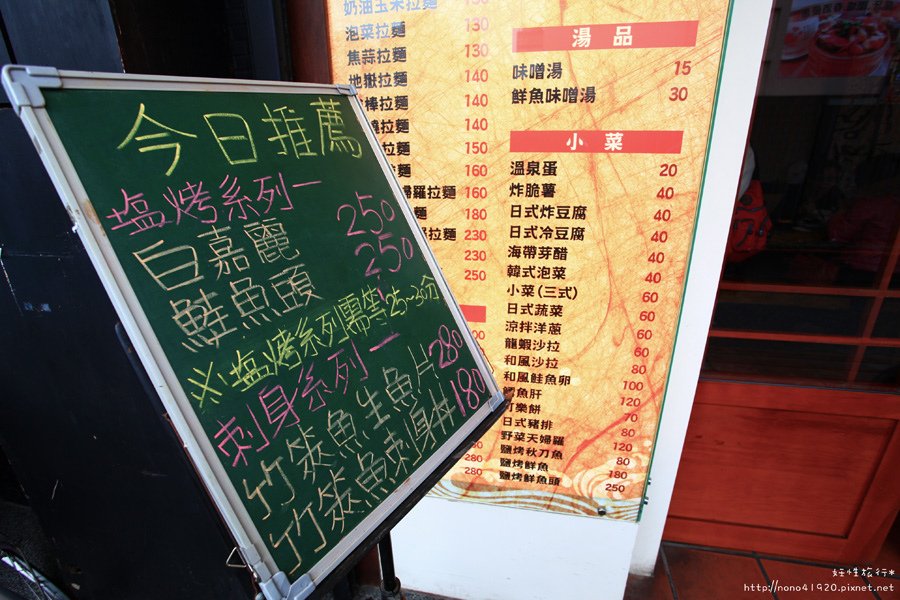 今日推薦
塩烤系列一
白嘉麗 250
鮭魚頭 250
※塩烤系列需等25~30分
刺身系列一
竹筴魚生魚片 280
竹筴魚刺身丼 180
奶油玉米拉麵 130
泡菜拉麵 130
焦蒜拉麵 130
地獄拉麵 140
棒拉麵 140
拉麵 140
拉麵 150
拉麵 160
婦羅拉麵 160
麵 180
拉麵 230
230
250
280
280
湯品
味噌湯 15
鮮魚味噌湯 30
小菜
溫泉蛋 20
炸脆薯 40
日式炸豆腐 40
日式冷豆腐 40
海帶芽醋 40
韓式泡菜 40
小菜(三式) 60
日式蔬菜 60
涼拌洋蔥 60
龍蝦沙拉 80
和風沙拉 80
和風鮭魚卵 100
魚肝 120
可樂餅 70
日式豬排 80
野菜天婦羅 120
鹽烤秋刀魚 80
鹽烤鮮魚 180
鹽烤鮮魚頭 250
http://nono41920.pixnet.net